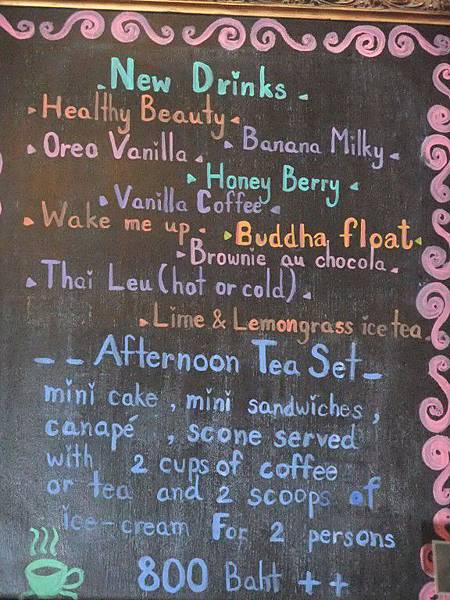 New Drinks
Healthy Beauty
Oreo Vanilla
Banana Milky
Honey Berry
Vanilla Coffee
Wake me up
Buddha float
Brownie au chocola
Thai Leu (hot or cold)
Lime & Lemongrass ice tea
Afternoon Tea Set
mini cake, mini sandwiches,
canapé, scone served
with 2 cups of coffee
or tea and 2 scoops of
ice-cream For 2 persons
800 Baht ++